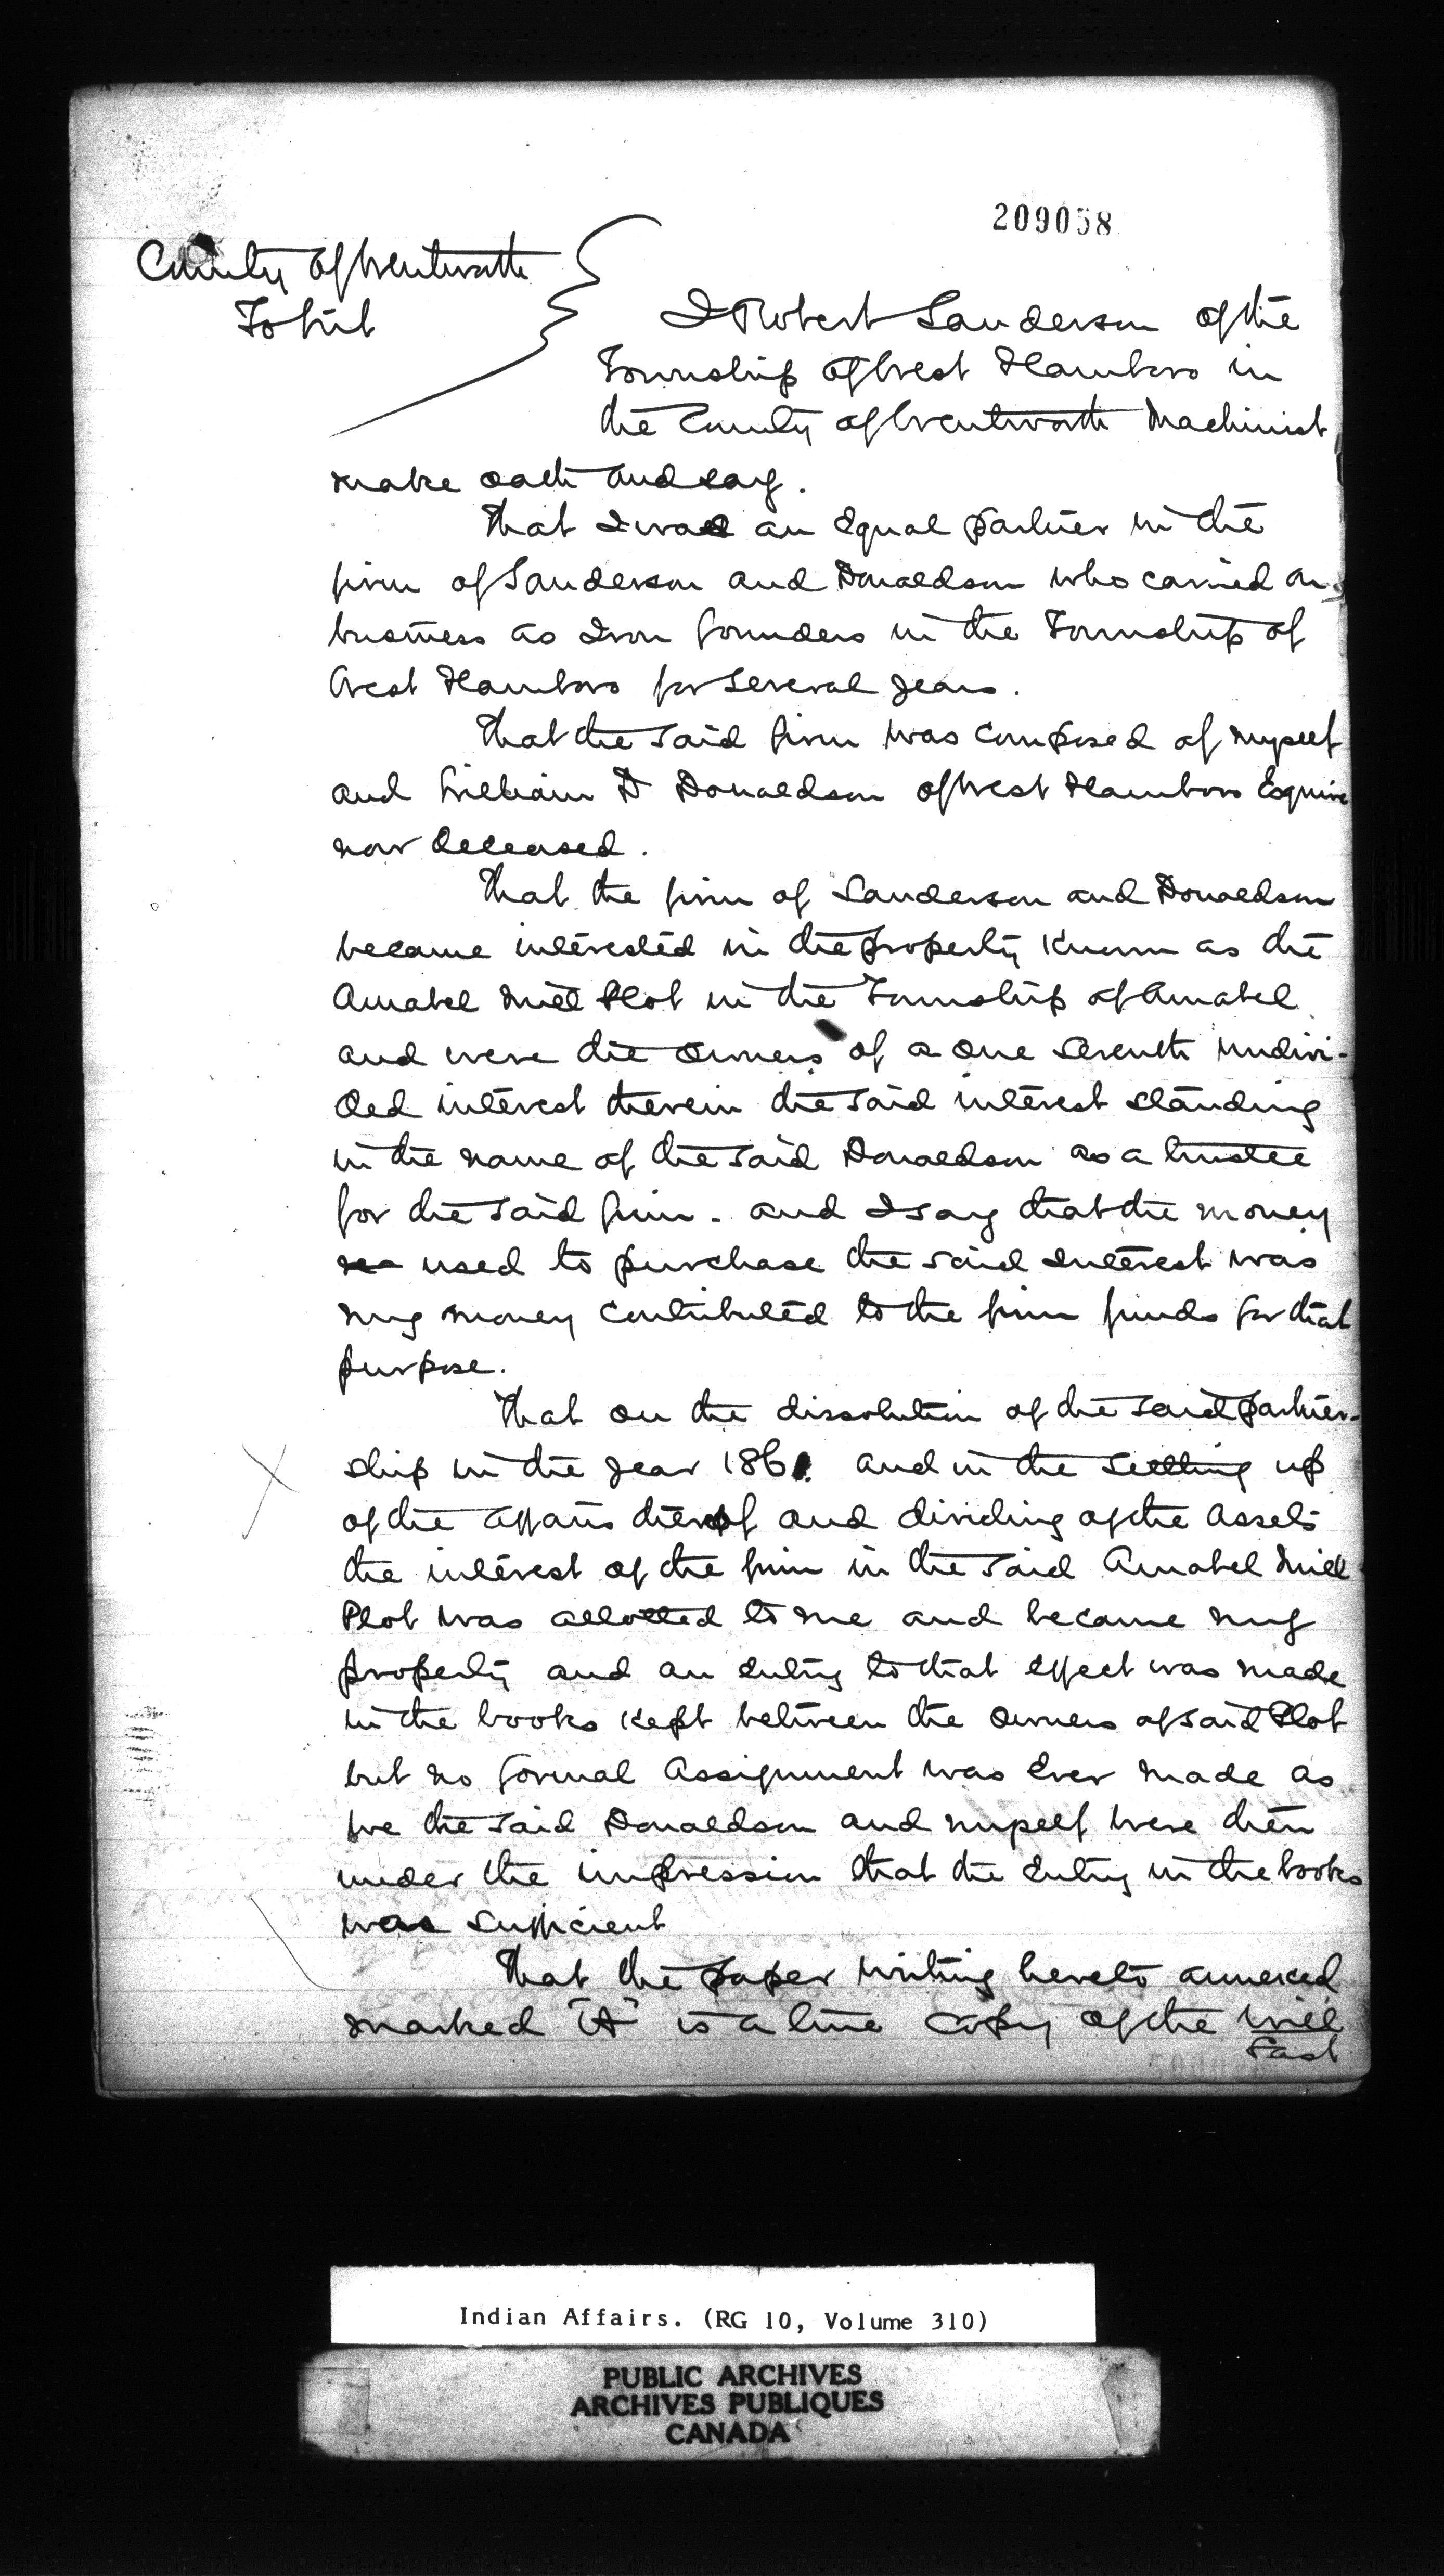 209058
County of Wentworth
To Wit
I Robert Sanderson of the
Township of West Flamboro in
the County of Wentworth Machinist
make oath and say.
That I was an Equal partner in the
firm of Sanderson and Donaldson who carried on
business as Iron founders in the Township of
West Flamboro for several years.
That the said firm was composed of myself
and William D Donaldson of West Flamboro Esquire
now deceased.
That the firm of Sanderson and Donaldson
became interested in the property Known as the
Amabel Mill Plot in the Township of Amabel
and were the owners of a one seventh undivi-
ded interest therein the said interest standing
in the name of the said Donaldson as a trustee
for the said firm. and I say that the money
used to purchase the said Interest was
my money contributed to the firm funds for that
purpose.
That on the dissolution of the said partner-
ship in the year 1861. and in the settling up
of the affairs thereof and dividing of the Assets
the interest of the firm in the said Amabel Mill
Plot was allotted to me and became my
property and an Entry to that effect was made
in the books Kept between the owners of said Plot
but no formal Assignment was Ever made as
we the said Donaldson and myself were then
under the impression that the Entry in the books
was sufficient
That the paper writing hereto annexed
marked "A" is a true copy of the Will
Last
Indian Affairs. (RG 10, Volume 310)
PUBLIC ARCHIVES
ARCHIVES PUBLIQUES
CANADA